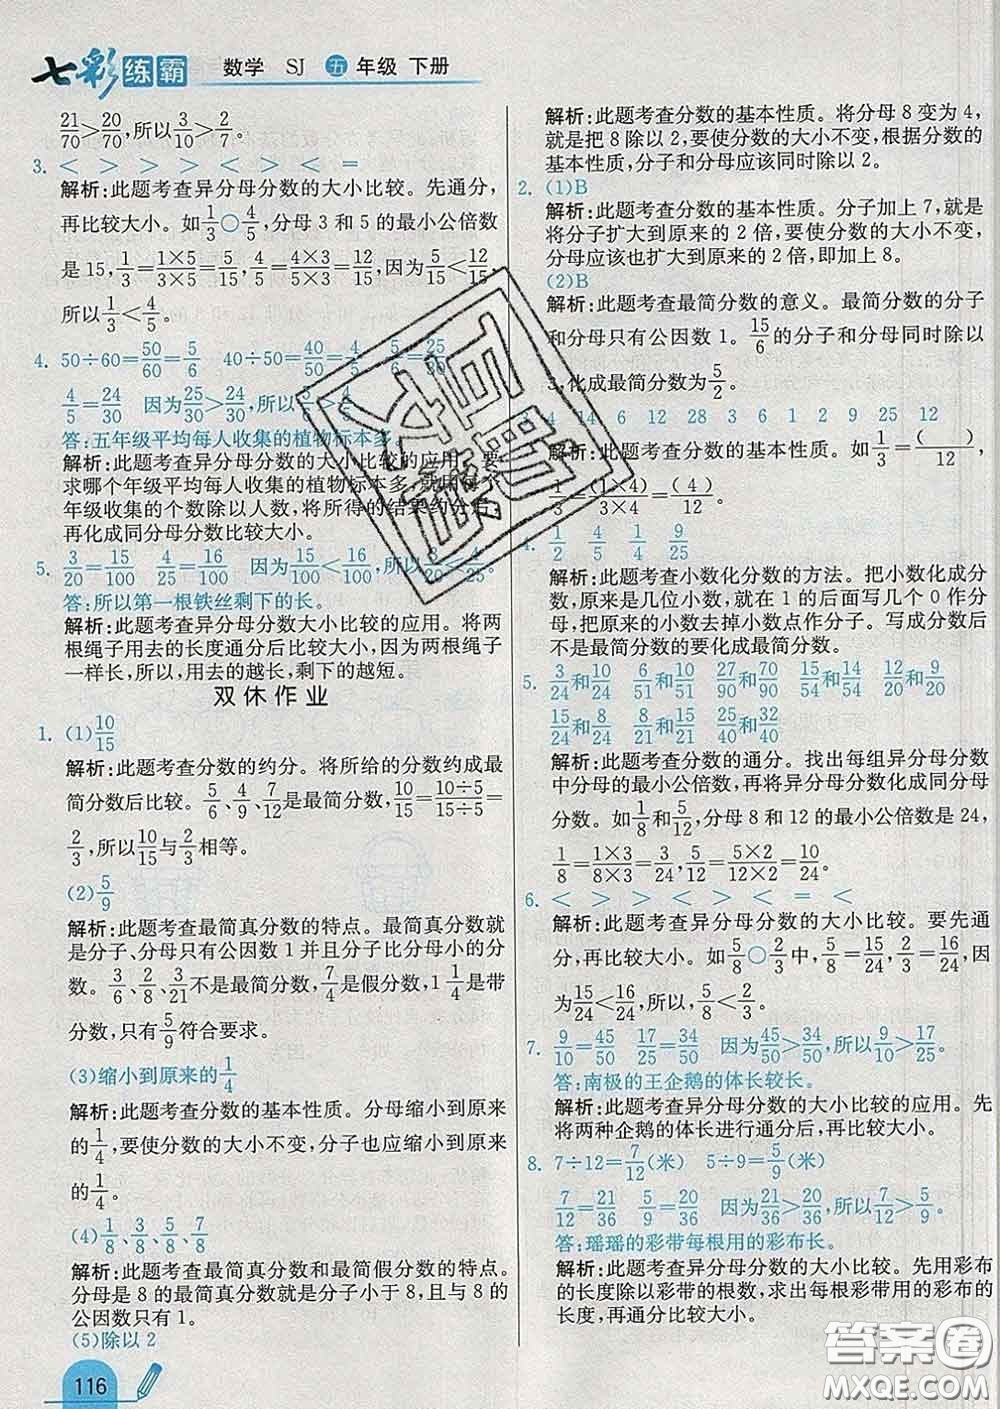 七彩练霸 数学 SJ 五年级 下册
21/70>20/70,所以3/10>2/7。
3. < < > > < > < =
解析:此题考查异分母分数的大小比较。先通分,
再比较大小。如1/3○4/5,分母 3 和 5 的最小公倍数
是 15,1/3=1×5/3×5=5/15,4/5=4×3/5×3=12/15,因为5/15<12/15
所以1/3<4/5。
4. 50÷60=50/60=5/6 40÷50=40/50=4/5 5/6=25/30
4/5=24/30 因为25/30>24/30,所以
答:五年级平均每人收集的植物标本多
解析:此题考查异分母分数的大小比较的应用。要
求哪个年级平均每人收集的植物标本多,就用每个
年级收集的个数除以人数,将所得的结果约分后,
再化成同分母分数比较大小。
5. 3/20=15/100 4/25=16/100 因为15/100<16/100,所以3/20<4/25。
答:所以第一根铁丝剩下的长。
解析:此题考查异分母分数大小比较的应用。将两
根绳子用去的长度通分后比较大小,因为两根绳子
一样长,所以,用去的越长,剩下的越短。
双休作业
1. (1)10/15
解析:此题考查分数的约分。将所给的分数约成最
简分数后比较。5/6、4/9、7/12是最简分数,10/15=10÷5/15÷5=
2/3,所以10/15与2/3相等。
(2)5/9
解析:此题考查最简真分数的特点。最简真分数就
是分子、分母只有公因数 1 并且分子比分母小的分
数。3/6、2/8、3/21不是最简分数,7/4是假分数,1 1/4是带
分数,只有5/9符合要求。
(3)缩小到原来的1/4
解析:此题考查分数的基本性质。分母缩小到原来
的1/4,要使分数的大小不变,分子也应缩小到原来
的1/4。
(4)1/8、3/8、5/8、7/8
解析:此题考查最简真分数和最简假分数的特点。
分母是 8 的最简真分数就是分子小于 8,且与 8 的
公因数只有 1。
(5)除以 2
116
解析:此题考查分数的基本性质。将分母 8 变为 4,
就是把 8 除以 2,要使分数的大小不变,根据分数的
基本性质,分子和分母应该同时除以 2。
2. (1)B
解析:此题考查分数的基本性质。分子加上 7,就是
将分子扩大到原来的 2 倍,要使分数的大小不变,
分母应该也扩大到原来的 2 倍,即加上 8。
(2)B
解析:此题考查最简分数的意义。最简分数的分子
和分母只有公因数 1。15/6的分子和分母同时除以
3,化成最简分数为5/2。
3. 4 14 6 12 28 3 6 1 2 9 25 12
解析:此题考查分数的基本性质。如1/3=( )/12,
1/3=(1×4)/3×4=(4)/12。
4. 1/2 4/5 1/4 9/25
解析:此题考查小数化分数的方法。把小数化成分
数,原来是几位小数,就在 1 的后面写几个 0 作分
母,把原来的小数去掉小数点作分子。写成分数后
不是最简分数的要化成最简分数。
5. 3/24和10/24 6/51和10/51 27/90和70/90 15/24和14/24 12/20和9/20
15/24和4/24 8/21和6/21 25/40和32/40
解析:此题考查分数的通分。找出每组异分母分数
中分母的最小公倍数,再将异分母分数化成同分母
分数。如1/8和5/12,分母 8 和 12 的最小公倍数是 24,
1/8=1×3/8×3=3/24,5/12=5×2/12×2=10/24。
6. < > > < > < = <
解析:此题考查异分母分数的大小比较。要先通
分,再比较大小。如5/8○2/3中,5/8=15/24,2/3=16/24,因
为15/24<16/24,所以,5/8<2/3。
7. 9/10=45/50 17/25=34/50 因为45/50>34/50,所以9/10>17/25。
答:南极的王企鹅的体长较长。
解析:此题考查异分母分数的大小比较的应用。先
将两种企鹅的体长进行通分后,再比较大小。
8. 7÷12=7/12(米) 5÷9=5/9(米)
7/12=21/36 5/9=20/36 因为21/36>20/36,所以7/12>5/9。
答:瑶瑶的彩带每根用的彩布长。
解析:此题考查异分母分数的大小比较。先用彩布
的长度除以彩带的根数,求出每根彩带用的彩布的
长度,再通分比较大小。
答案圈
MXQE.COM